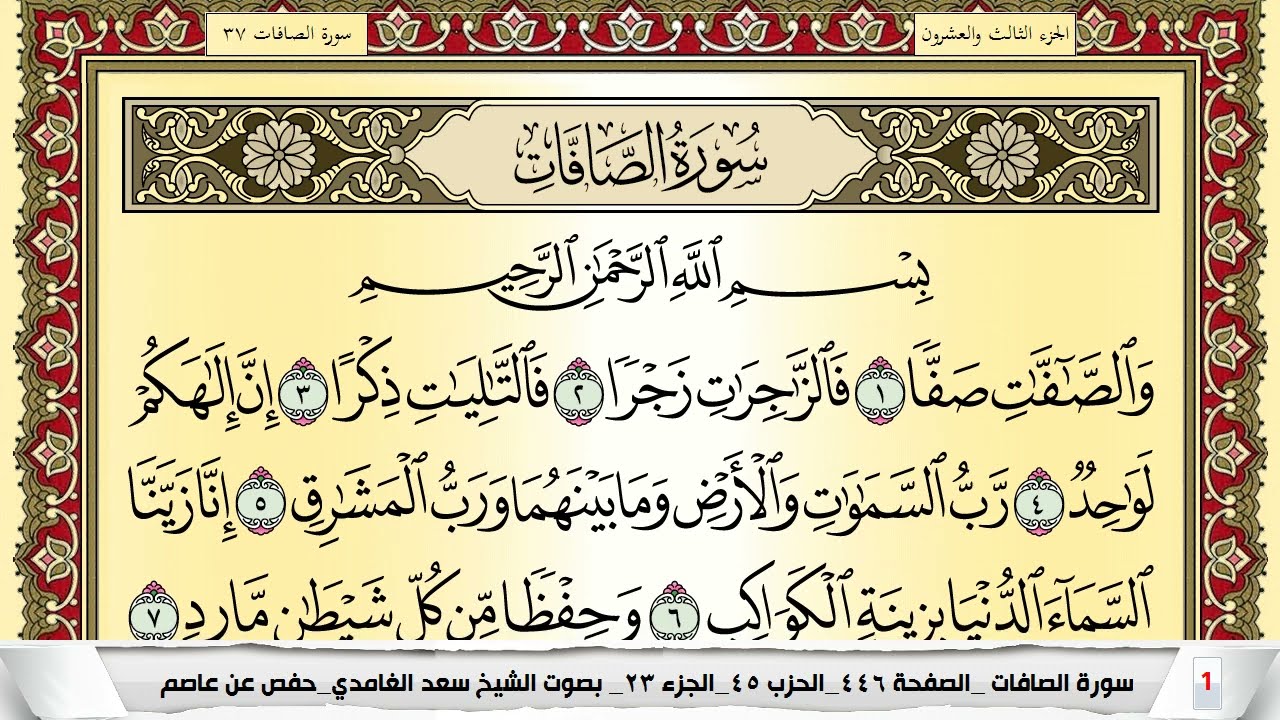 الجزء الثالث والعشرون
سورة الصافات ٣٧
سُورَةُ الصَّافَّاتِ
بِسْمِ ٱللَّهِ ٱلرَّحْمَٰنِ ٱلرَّحِيمِ
وَٱلصَّٰٓفَّٰتِ صَفًّا ١ فَٱلزَّٰجِرَٰتِ زَجْرًا ٢ فَٱلتَّٰلِيَٰتِ ذِكْرًا ٣ إِنَّ إِلَٰهَكُمْ
لَوَٰحِدٌ ٤ رَّبُّ ٱلسَّمَٰوَٰتِ وَٱلْأَرْضِ وَمَا بَيْنَهُمَا وَرَبُّ ٱلْمَشَٰرِقِ ٥ إِنَّا زَيَّنَّا
ٱلسَّمَآءَ ٱلدُّنْيَا بِزِينَةٍ ٱلْكَوَاكِبِ ٦ وَحِفْظًا مِّن كُلِّ شَيْطَٰنٍ مَّارِدٍ ٧
سورة الصافات _الصفحة ٤٤٦_الحزب ٤٥_الجزء ٢٣_ بصوت الشيخ سعد الغامدي_حفص عن عاصم
1